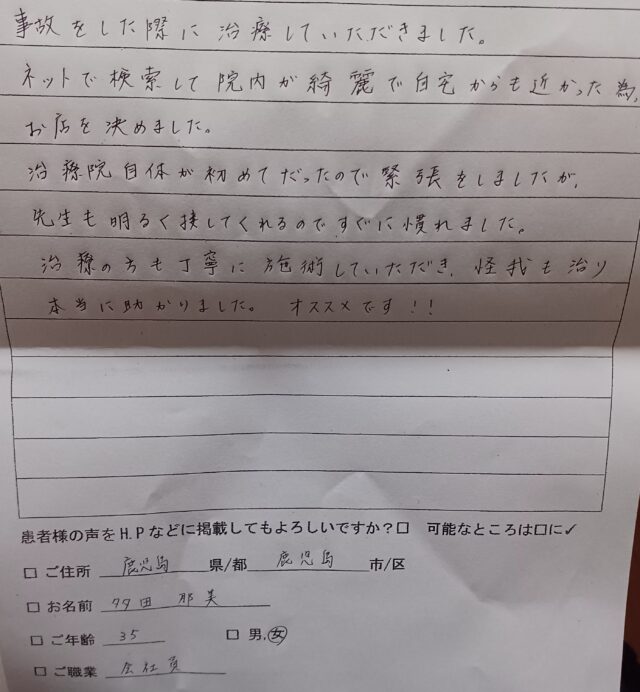 事故をした際に治療していただきました。
ネットで検索して院内が綺麗で自宅からも近かった為、
お店を決めました。
治療院自体が初めてだったので緊張をしましたが、
先生も明るく接してくれるのですぐに慣れました。
治療の方も丁寧に施術していただき、怪我も治り
本当に助かりました。 オススメです!!
患者様の声をH.Pなどに掲載してもよろしいですか?□ 可能なところは□に✓
□ ご住所 鹿児島 県/都 鹿児島 市/区
□ お名前 多田 那美
□ ご年齢 35 □ 男.女
□ ご職業 会社員